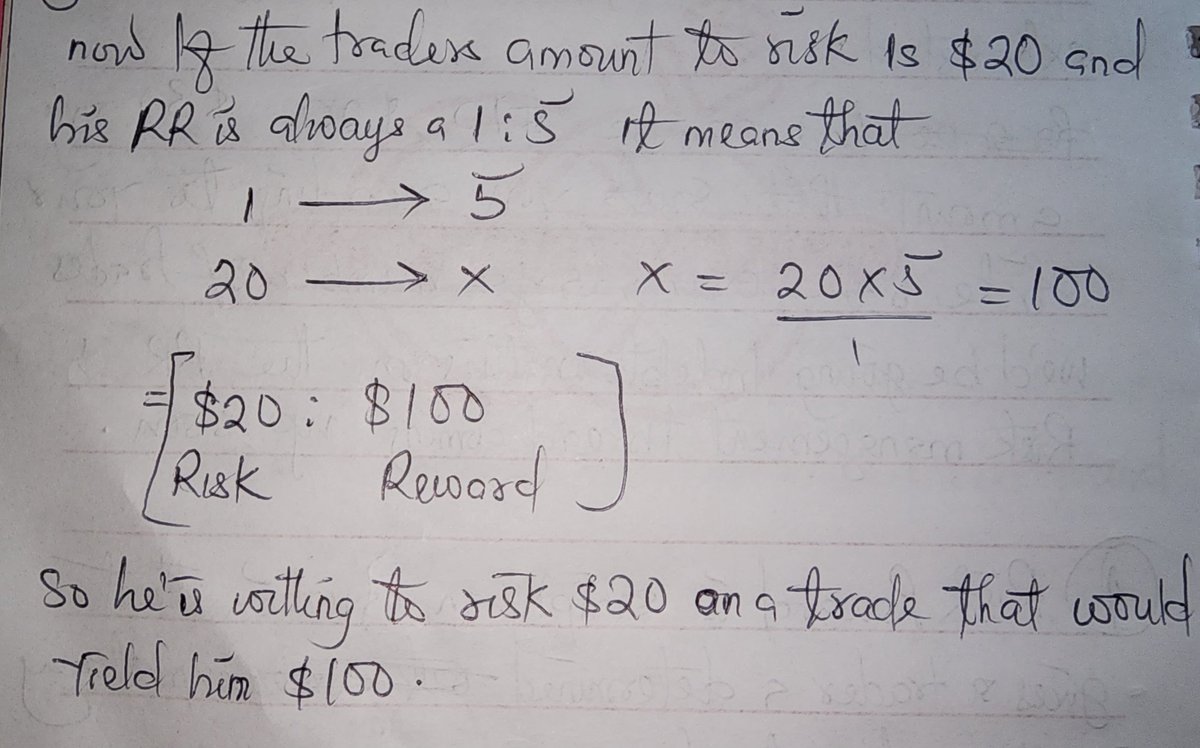 now If the traders amount to risk Is $20 and
his RR is always a 1:5 it means that
1 → 5
20 → x x = 20x5 = 100
1
= [ $20 : $100 ]
Risk Reward
So he is willing to risk $20 on a trade that would
Yield him $100.